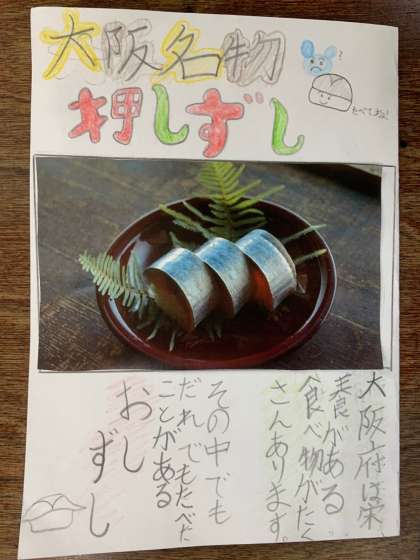 大阪名物
押しずし
?
たべてね!
大阪府は栄
養がある
食べ物がたく
さんあります。
その中でも
だれでもたべた
ことがある
おし
ずし